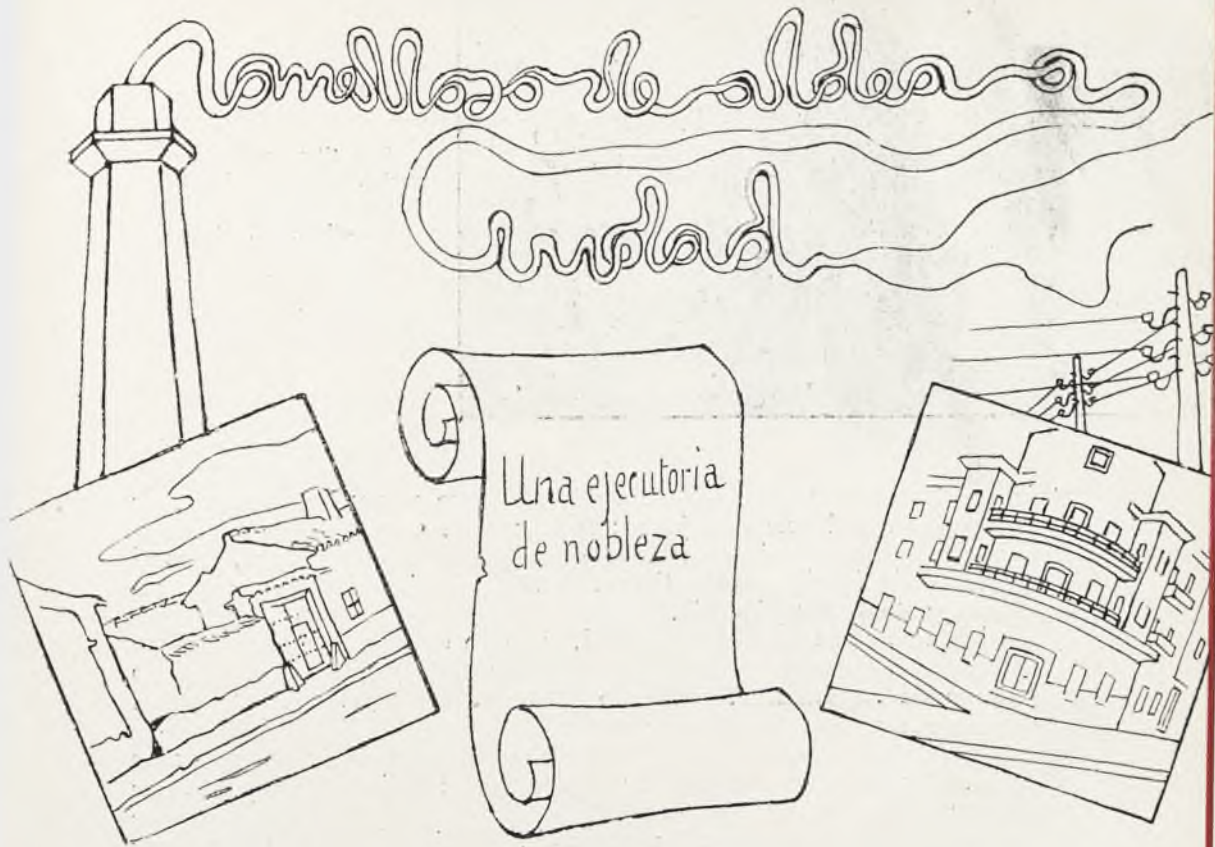 Tomelloso de aldea a
Ciudad
Una ejecutoria
de nobleza